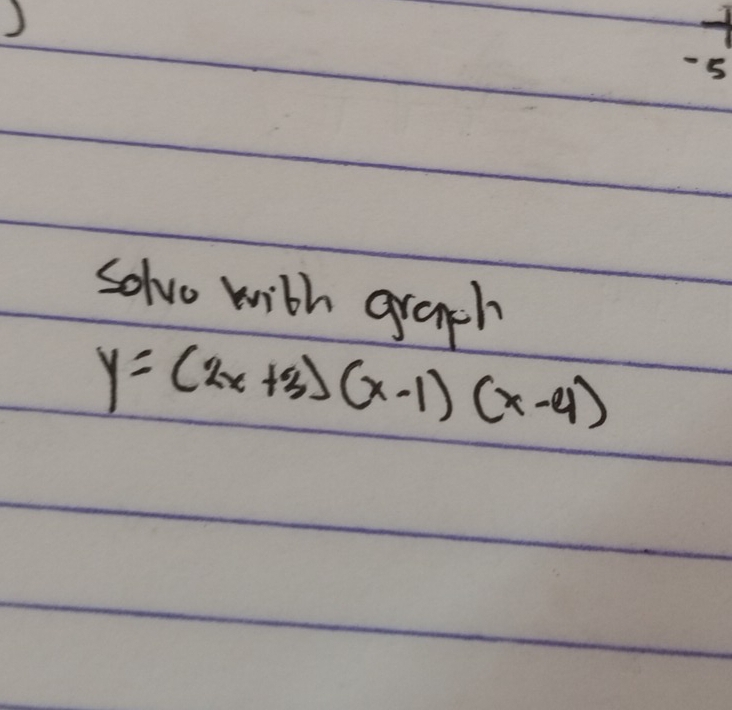 )
-5
Solve with graph
y = (2x + 3) (x - 1) (x - 4)